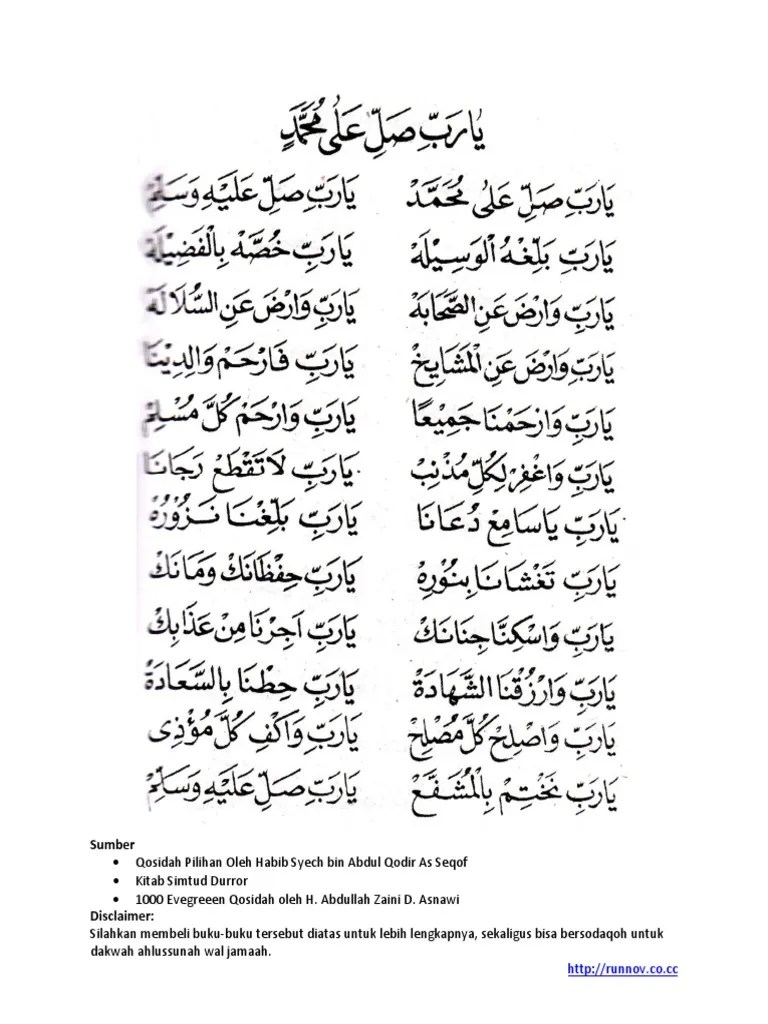 يَارَبِّ صَلِّ عَلَى مُحَمَّدٍ
يَارَبِّ صَلِّ عَلَى مُحَمَّدْ يَارَبِّ صَلِّ عَلَيْهِ وَسَلِّمْ
يَارَبِّ بَلِّغْهُ الْوَسِيْلَهْ يَارَبِّ خُصَّهْ بِالْفَضِيْلَهْ
يَارَبِّ وَارْضَ عَنِ الصَّحَابَهْ يَارَبِّ وَارْضَ عَنِ السُّلَالَهْ
يَارَبِّ وَارْضَ عَنِ الْمَشَايِخْ يَارَبِّ فَارْحَمْ وَالِدِيْنَا
يَارَبِّ وَارْحَمْنَا جَمِيْعًا يَارَبِّ وَارْحَمْ كُلَّ مُسْلِمْ
يَارَبِّ وَاغْفِرْ لِكُلِّ مُذْنِبْ يَارَبِّ لَا تَقْطَعْ رَجَانَا
يَارَبِّ يَاسَامِعْ دُعَانَا يَارَبِّ بَلِّغْنَا نَزُوْرُهْ
يَارَبِّ تَغْشَانَا بِنُوْرِهْ يَارَبِّ حِفْظَانَكْ وَمَانَكْ
يَارَبِّ وَاسْكِنَّا جِنَانَكْ يَارَبِّ اَجِرْنَا مِنْ عَذَابِكْ
يَارَبِّ وَارْزُقْنَا الشَّهَادَةْ يَارَبِّ حِطْنَا بِالسَّعَادَةْ
يَارَبِّ وَاصْلِحْ كُلَّ مُصْلِحْ يَارَبِّ وَاكْفِ كُلَّ مُؤْذِى
يَارَبِّ نَخْتِمْ بِالْمُشَفَّعْ يَارَبِّ صَلِّ عَلَيْهِ وَسَلِّمْ
Sumber
• Qosidah Pilihan Oleh Habib Syech bin Abdul Qodir As Seqof
• Kitab Simtud Durror
• 1000 Evegreeen Qosidah oleh H. Abdullah Zaini D. Asnawi
Disclaimer:
Silahkan membeli buku-buku tersebut diatas untuk lebih lengkapnya, sekaligus bisa bersodaqoh untuk
dakwah ahlussunah wal jamaah.
http://runnov.co.cc